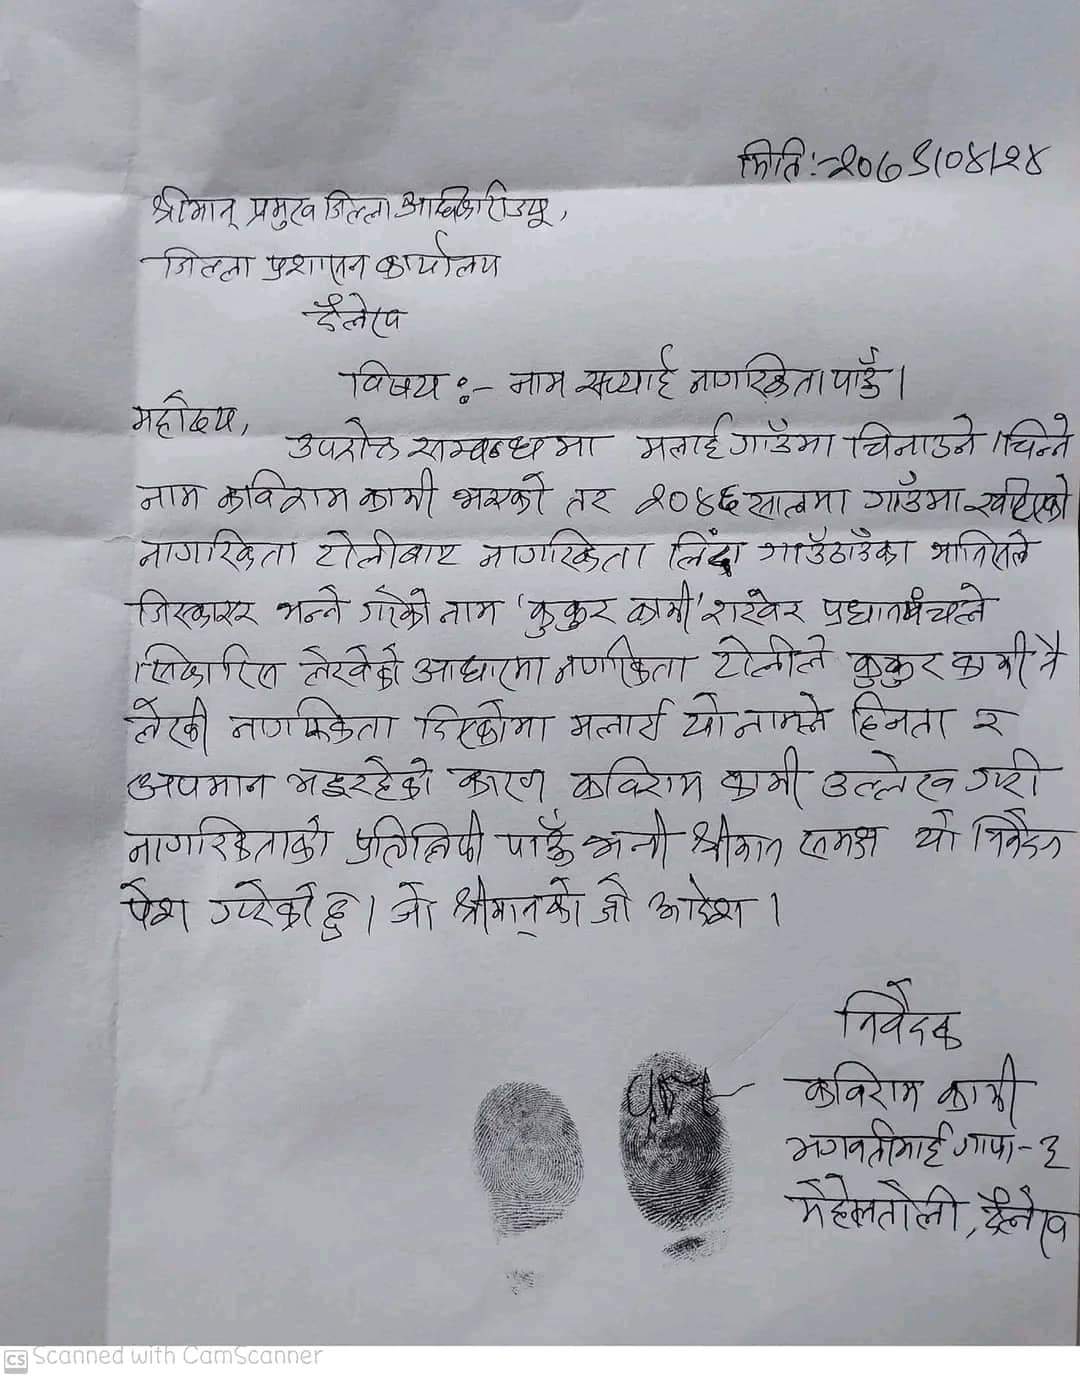 मिति:- २०७९/०४/२४
श्रीमान् प्रमुख जिल्ला अधिकारीज्यू,
जिल्ला प्रशासन कार्यालय
दैलेख
विषय :- नाम सच्याई नागरिकता पाउँ।
महोदय,
उपरोक्त सम्बन्धमा मलाई गाउँमा चिनाउने/चिन्ने
नाम कविराम कामी भएको तर २०४६ सालमा गाउँमा खटिएको
नागरिकता टोलीबाट नागरिकता लिँदा गाउँठाउँका मानिसले
तिरस्कार भन्ने गरेको नाम 'कुकुर कामी' राखेर प्रधानपंचले
सिफारिस लेखेको आधारमा नागरिकता टोलीले कुकुर कामी नै
लेखी नागरिकता दिएकोमा मलाई यो नामले हिनता र
अपमान भइरहेको कारण कविराम कामी उल्लेख गरी
नागरिकताको प्रतिलिपी पाउँ भनी श्रीमान समक्ष यो निवेदन
पेश गरेको छु। जो श्रीमान्को जो आदेश।
निवेदक
कविराम कामी
भगवतीमाई गापा-३
मेहेलतोली, दैलेख
CS Scanned with CamScanner